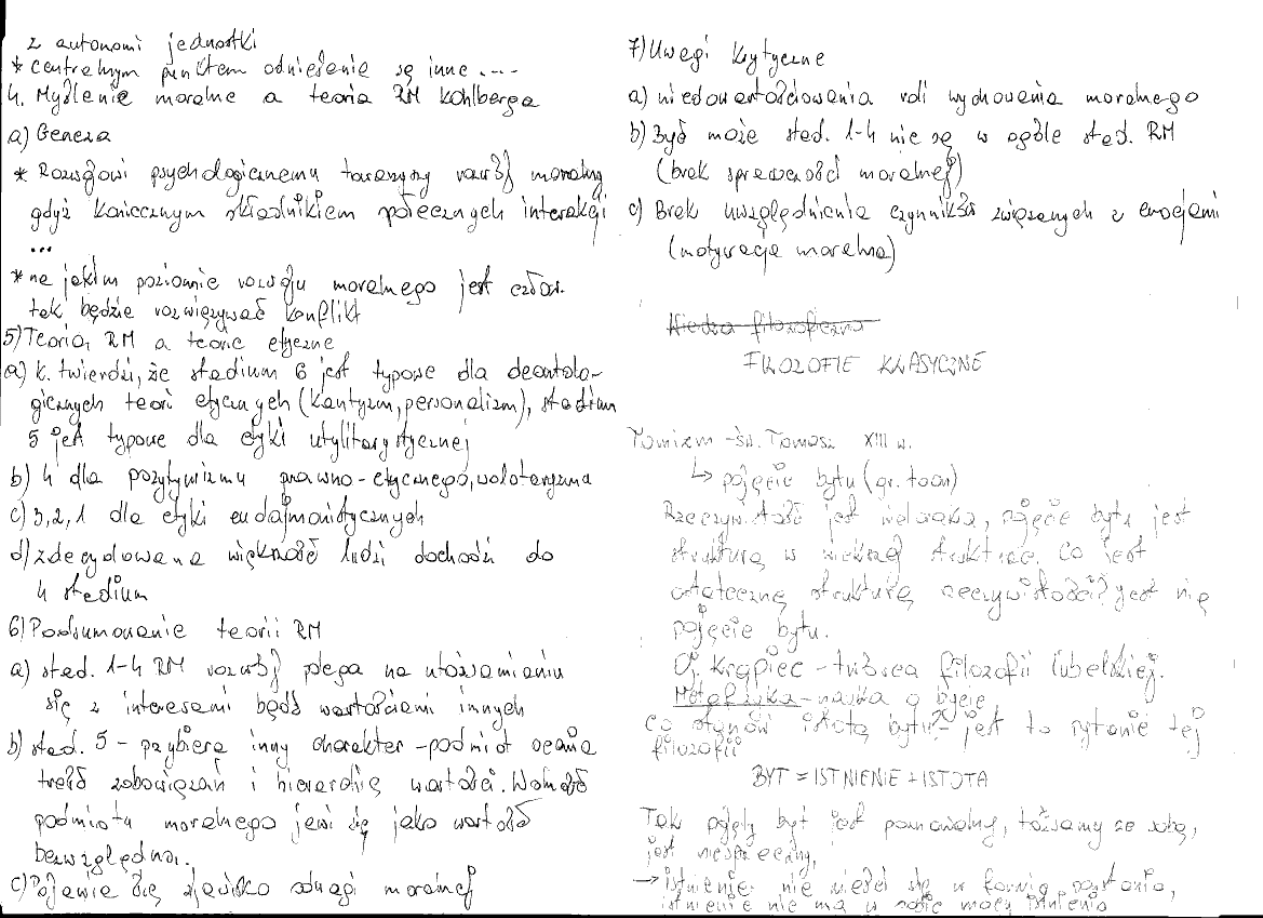 z autonomi jednostki
* centralnym punktem odniesienie są inne ....
4. Myślenie moralne a teoria RM Kohlberga
a) Geneza
* Rozwojowi psychologicznemu towarzyszy rozwój moralny
gdyż koniecznym składnikiem społecznych interakcji
...
* na jakim poziomie rozwoju moralnego jest człow.
tak będzie rozwiązywać konflikt
5) Teoria RM a teorie etyczne
a) K. twierdzi, że stadium 6 jest typowe dla deontolo-
gicznych teorii etycznych (Kantyzm, personalizm), stadium
5 jest typowe dla etyki utylitarystycznej
b) 4 dla pozytywizmu prawno-etycznego,
c) 3,2,1 dla etyki eudajmonistycznych
d) zdecydowana większość ludzi dochodzi do
4 stadium
6) Podsumowanie teorii RM
a) stad. 1-4 RM rozwój polega na utożsamianiu
się z interesami bądź wartościami innych
b) stad. 5 - przybiera inny charakter - podmiot ocenia
treść zobowiązań i hierarchię wartości. Wolność
podmiotu moralnego jawi się jako wartość
bezwzględna.
c) Pojawia się zjawisko odwagi moralnej
7) Uwagi krytyczne
a) niedowartościowania roli wychowania moralnego
b) Być może stad. 1-4 nie są w ogóle stad. RM
(brak sprawczości moralnej)
c) Brak uwzględnienia czynników związanych z emocjami
(motywacje moralne)
Wiedza filozoficzna
FILOZOFIE KLASYCZNE
Tomizm - św. Tomasz XIII w.
↳ pojęcie bytu (gr. toon)
Rzeczywistość jest wieloaka, pojęcie bytu jest
strukturą w struktrze. Co jest
ostateczną strukturą rzeczywistości? jest nią
pojęcie bytu.
O. Krąpiec - twórca filozofii lubelskiej.
Metafizyka - nauka o bycie
Co stanowi istotę bytu? - jest to pytanie tej
filozofii
BYT = ISTNIENIE + ISTOTA
Tak pojęty byt jest poznawalny, tożsamy ze sobą,
jest niesprzeczny,
→ istnienie nie mieści się w formie
istnienie nie ma w sobie mocy istnienia